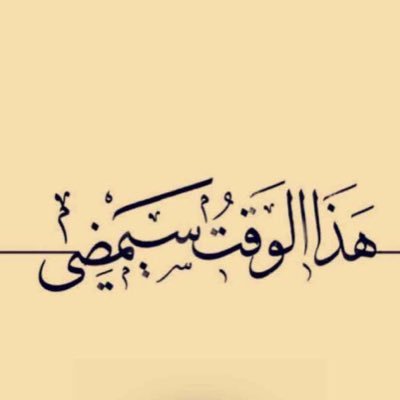 هَذَا الوَقتُ سَيَمضِى